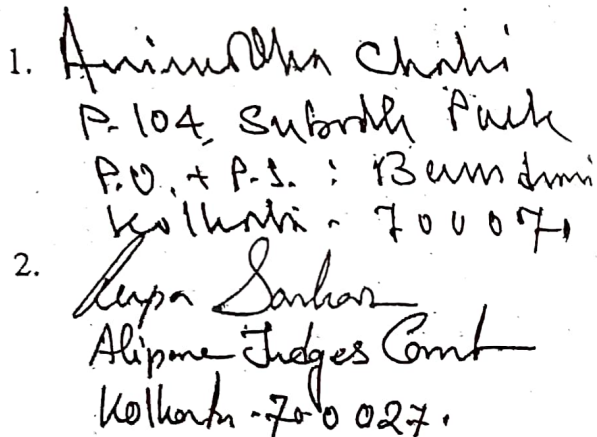 1. Aniruddha Chaki
P-104, Subodh Park
P.O. + P.S. : Bansdroni
Kolkata - 70007
2. Rupa Sarkar
Alipore Judges Court
Kolkata - 700027.